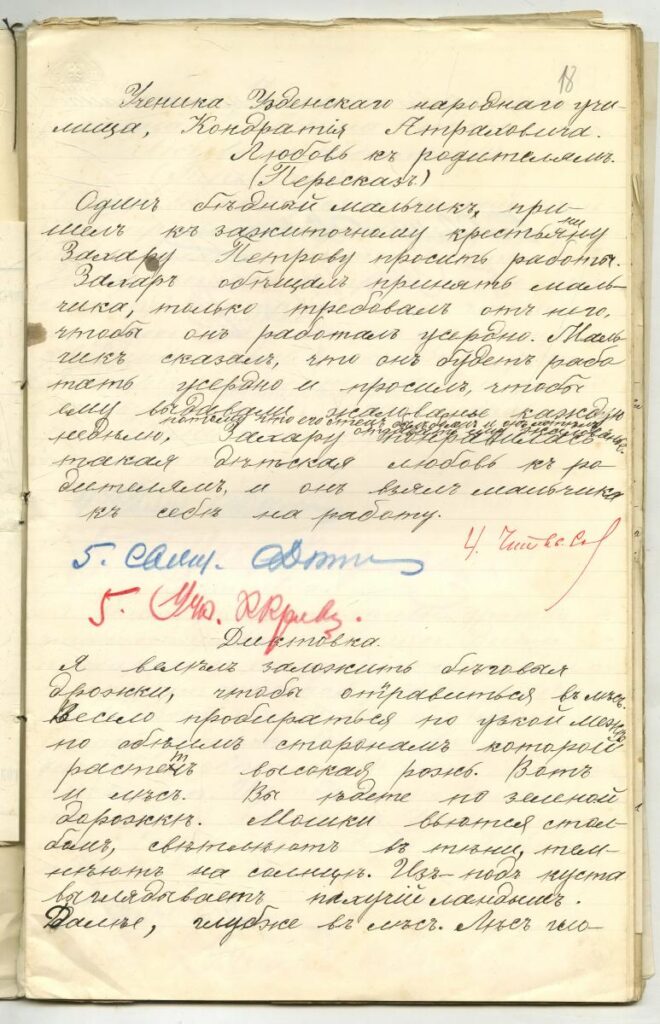 18
Ученика Узденскаго народнаго учи-
лища, Кондратія Атраховича.
Любовь къ родителямъ.
(Пересказъ)
Одинъ бѣдный мальчикъ, при-
шелъ къ зажиточному крестьянину
Захару Петрову просить работы.
Захаръ обѣщалъ принять маль-
чика, только требовалъ отъ него,
чтобы онъ работалъ усердно. Маль-
чикъ сказалъ, что онъ будетъ рабо
тать усердно и просилъ, чтобы
ему выдавали жалованье каждую
потому что его отецъ
недѣлю, Захару понравилась
такая дѣтская любовь къ ро-
дителямъ, и онъ взялъ мальчика
къ себѣ на работу.
4.
5.
5. Уч.
Диктовка.
Я велѣлъ заложить бѣговыя
дрожки, чтобы отправиться въ лѣсъ.
Весело пробираться по узкой межѣ
по обѣимъ сторонамъ которой
растетъ высокая рожь. Вотъ
и лѣсъ. Вы ѣдете по зеленой
дорожкѣ. Мошки вьются стол-
бомъ, свѣтлѣютъ въ тѣни, тем-
нѣютъ на солнцѣ. Изъ-подъ куста
выглядываетъ пахучій ландышъ.
Далѣе, глубже въ лѣсъ. Лѣсъ гло-